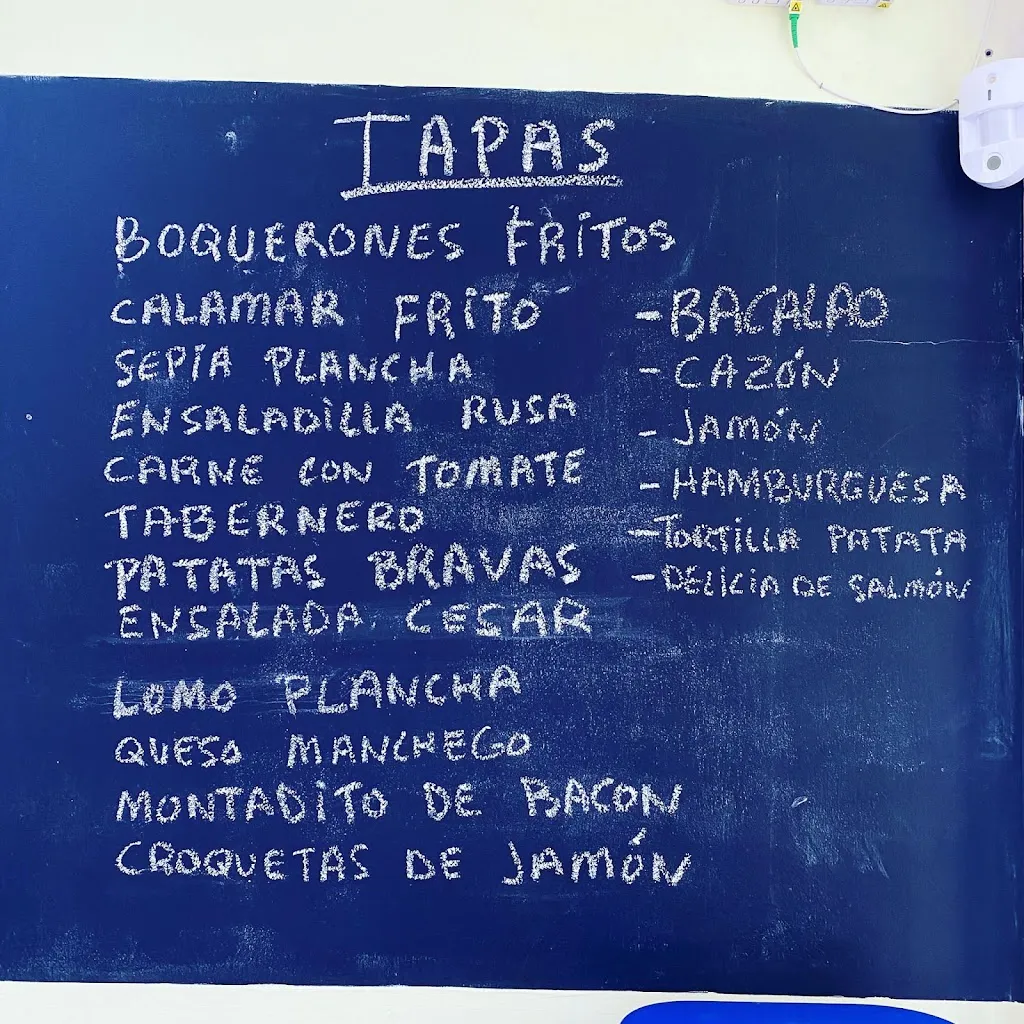 TAPAS
BOQUERONES FRITOS
CALAMAR FRITO
SEPIA PLANCHA
ENSALADILLA RUSA
CARNE CON TOMATE
TABERNERO
PATATAS BRAVAS
ENSALADA CESAR
LOMO PLANCHA
QUESO MANCHEGO
MONTADITO DE BACON
CROQUETAS DE JAMÓN
- BACALAO
- CAZÓN
- JAMÓN
- HAMBURGUESA
- TORTILLA PATATA
- DELICIA DE SALMÓN